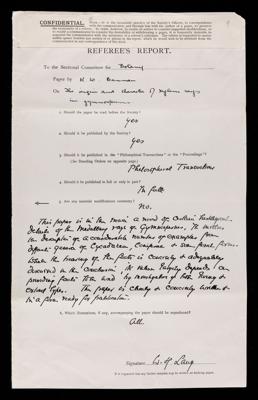 CONFIDENTIAL.
REFEREE'S REPORT.
To the Sectional Committee for Botany
Paper by
On The origin and of xylem rays
in gymnosperms
1. Should the paper be read before the Society?
Yes
2. Should it be published by the Society?
Yes
3. Should it be published in the "Philosophical Transactions" or the "Proceedings"?
(See Standing Orders on opposite page.)
Philosophical Transactions
4. Should it be published in full or only in part?
In full
5. Are any essential modifications necessary?
No.
This paper is in the main a record of
details of the medullary rays of Gymnosperms, the
the description of a considerable number of examples from
different genera of Cycadean, Coniferae &
While the bearing of the facts is concisely & adequately
discussed in the conclusion, the value largely depends on
providing facts to be had by investigation of both living &
extinct types. The paper is clearly & concisely written &
in a form ready for publication.
6. Which illustrations, if any, accompanying the paper should be reproduced?
All.
Signature W. H. Lang